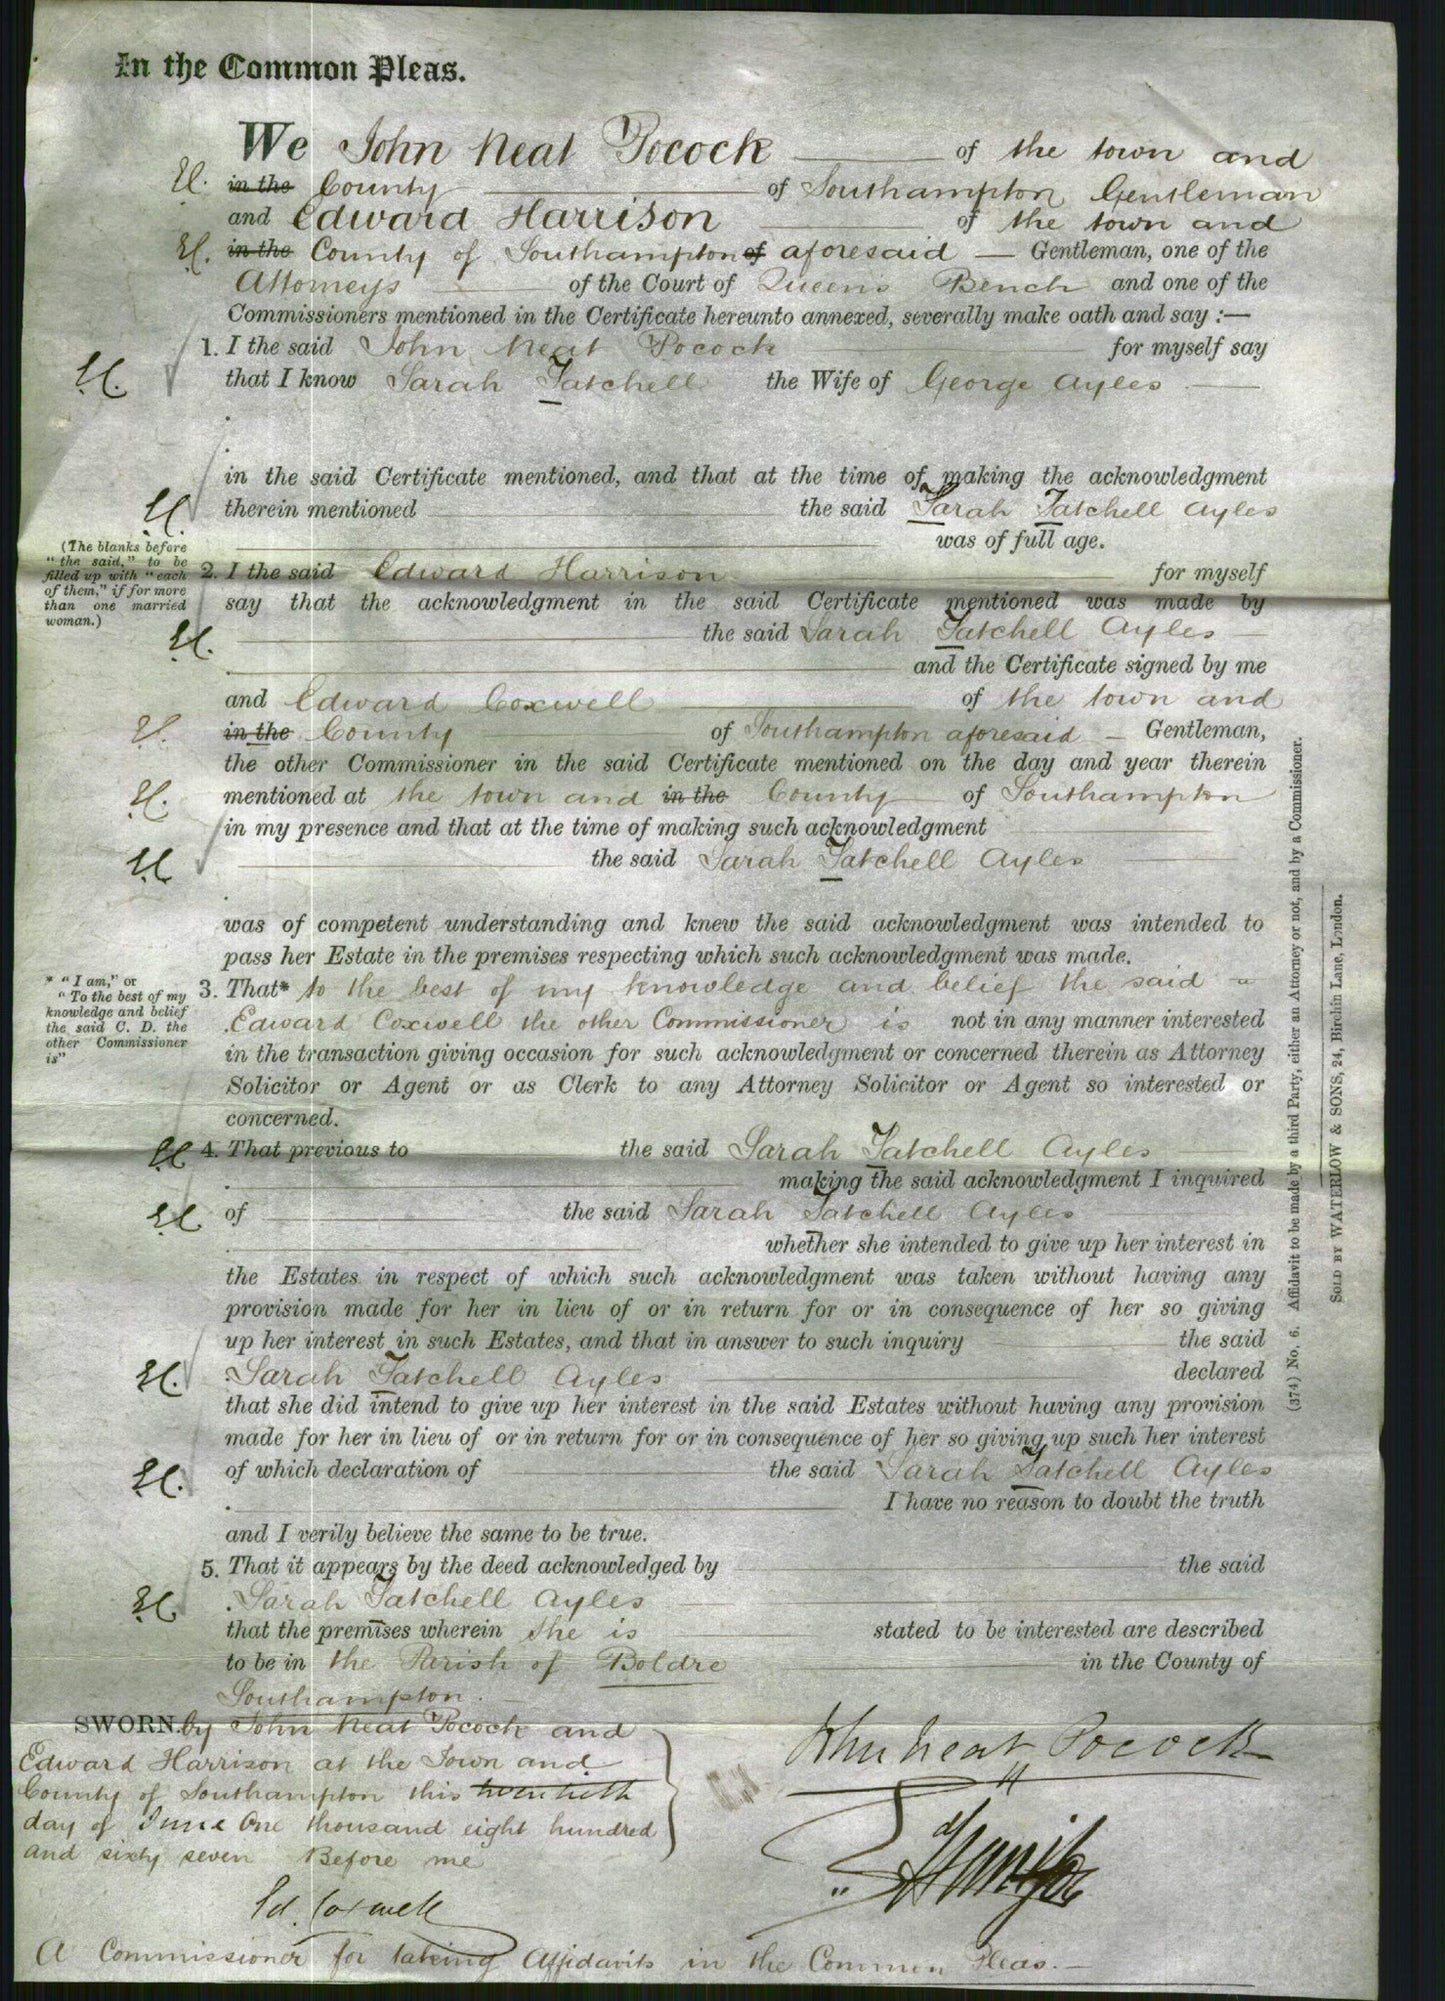 In the Common Pleas.
We John Neat Pocock of the town and
in the County of Southampton Gentleman
and Edward Harrison of the town and
in the County of Southampton of aforesaid — Gentleman, one of the
Attorneys of the Court of Queens Bench and one of the
Commissioners mentioned in the Certificate hereunto annexed, severally make oath and say :—
1. I the said John Neat Pocock for myself say
that I know Sarah Tatchell the Wife of George Ayles
in the said Certificate mentioned, and that at the time of making the acknowledgment
therein mentioned the said Sarah Tatchell Ayles
was of full age.
(The blanks before
"the said," to be
filled up with "each
of them," if for more
than one married
woman.)
2. I the said Edward Harrison for myself
say that the acknowledgment in the said Certificate mentioned was made by
the said Sarah Tatchell Ayles
and the Certificate signed by me
and Edward Coxwell of the town and
in the County of Southampton aforesaid — Gentleman,
the other Commissioner in the said Certificate mentioned on the day and year therein
mentioned at the town and in the County of Southampton
in my presence and that at the time of making such acknowledgment
the said Sarah Tatchell Ayles
was of competent understanding and knew the said acknowledgment was intended to
pass her Estate in the premises respecting which such acknowledgment was made.
* "I am," or
"To the best of my
knowledge and belief
the said C. D. the
other Commissioner
is"
3. That* to the best of my knowledge and belief the said
Edward Coxwell the other Commissioner is not in any manner interested
in the transaction giving occasion for such acknowledgment or concerned therein as Attorney
Solicitor or Agent or as Clerk to any Attorney Solicitor or Agent so interested or
concerned.
4. That previous to the said Sarah Tatchell Ayles
making the said acknowledgment I inquired
of the said Sarah Tatchell Ayles
whether she intended to give up her interest in
the Estates in respect of which such acknowledgment was taken without having any
provision made for her in lieu of or in return for or in consequence of her so giving
up her interest in such Estates, and that in answer to such inquiry the said
Sarah Tatchell Ayles declared
that she did intend to give up her interest in the said Estates without having any provision
made for her in lieu of or in return for or in consequence of her so giving up such her interest
of which declaration of the said Sarah Tatchell Ayles
I have no reason to doubt the truth
and I verily believe the same to be true.
5. That it appears by the deed acknowledged by the said
Sarah Tatchell Ayles
that the premises wherein she is stated to be interested are described
to be in the Parish of Boldre in the County of
Southampton.
SWORN by John Neat Pocock and
Edward Harrison at the Town and
County of Southampton this twentieth
day of June One thousand eight hundred
and sixty seven Before me
Ed. Coxwell
A Commissioner for taking Affidavits in the Common Pleas.—
John Neat Pocock
E Harrison
(374) No. 6. Affidavit to be made by a third Party, either an Attorney or not, and by a Commissioner.
SOLD BY WATERLOW & SONS, 24, Birchin Lane, London.